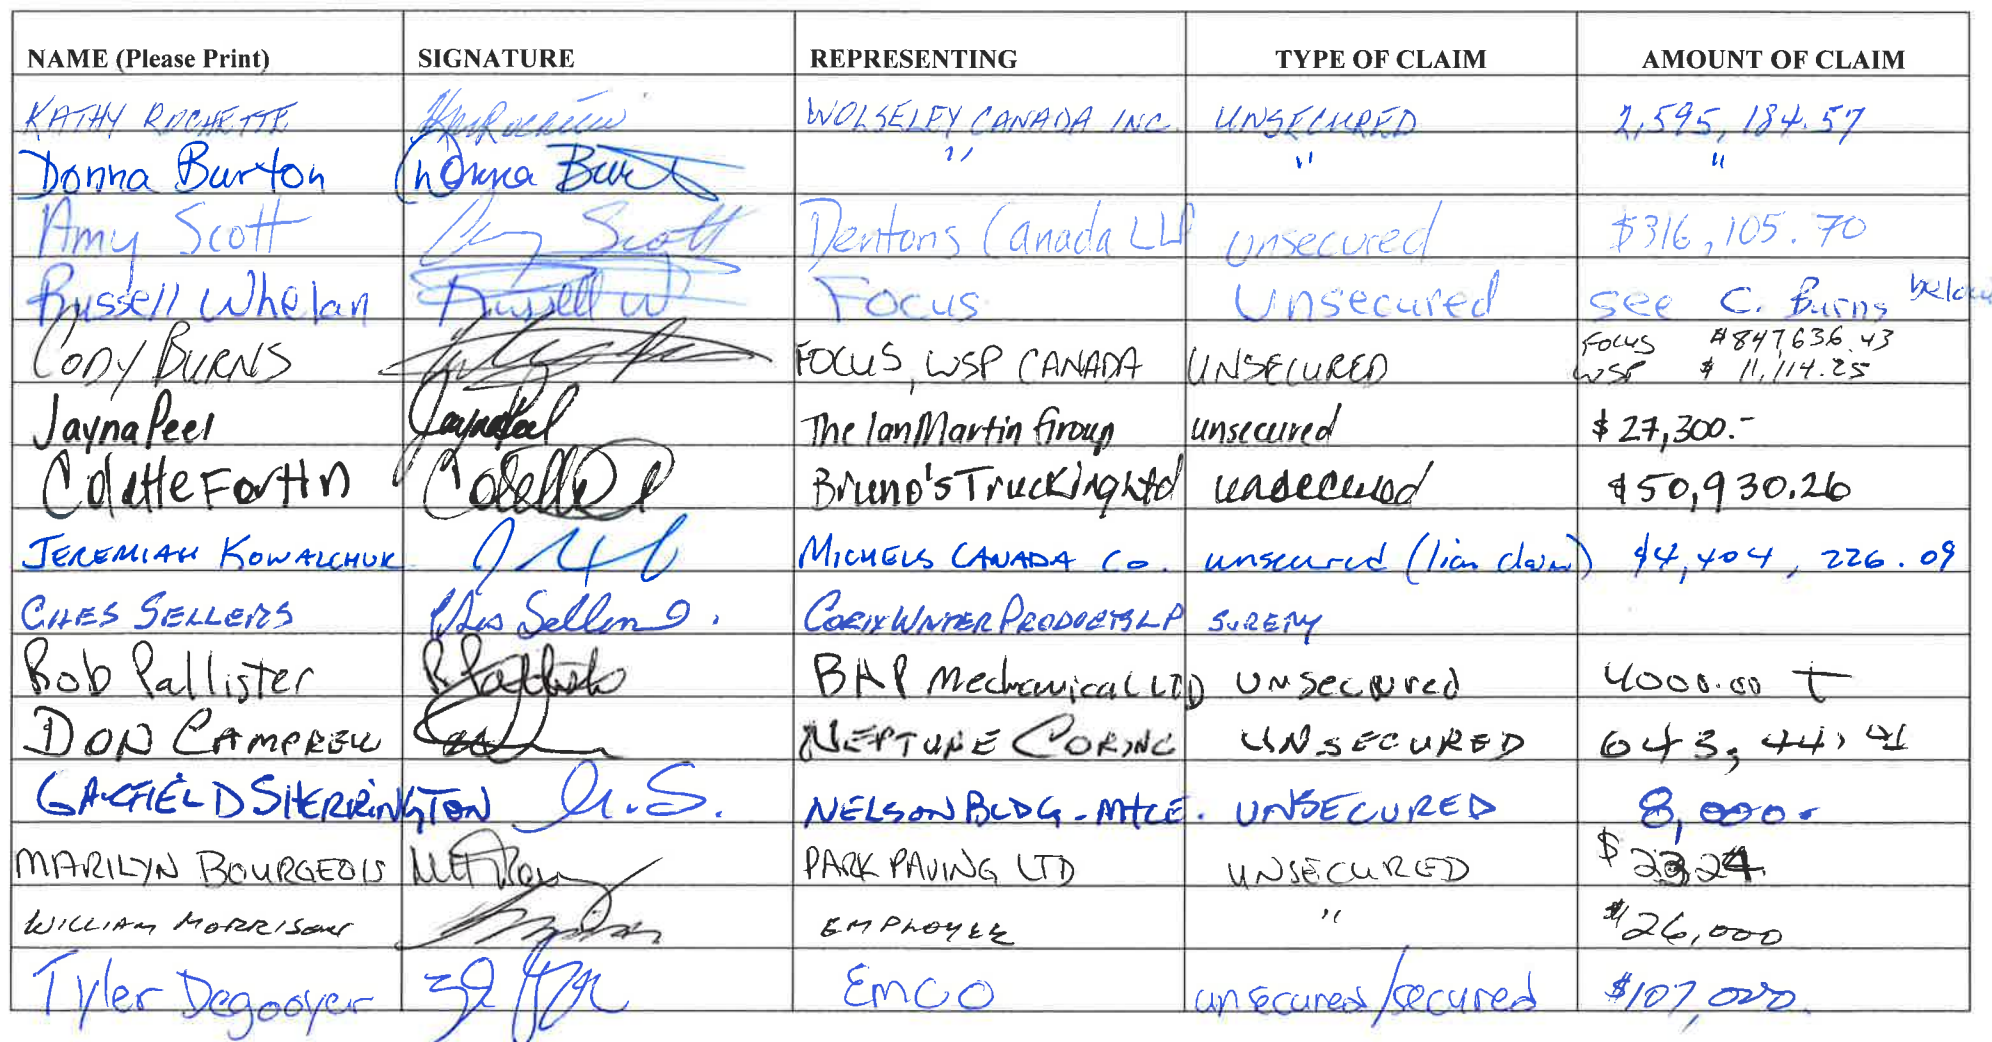 NAME (Please Print) SIGNATURE REPRESENTING TYPE OF CLAIM AMOUNT OF CLAIM
KATHY ROCHETTE WOLSELEY CANADA INC. UNSECURED 2,595,184.57
Donna Burton Donna Burt " " "
Amy Scott Amy Scott Dentons Canada LLP unsecured $316,105.70
Russell Whelan Russell W Focus Unsecured see C. Burns below
CODY BURNS FOCUS, WSP CANADA UNSECURED FOCUS $847636.43
WSP $ 11,114.25
Jayna Peel Jayna Peel The Ian Martin Group unsecured $27,300.-
Colette Fortin Bruno's Trucking Ltd unsecured $50,930.26
JEREMIAH KOWALCHUK MICHELS CANADA Co. unsecured (lien claim) $4,404,226.09
CHES SELLERS Ches Sellers CORIX WATER PRODUCTS LP SURETY
Rob Pallister R Pallister BHP Mechanical LTD UNSecured 4000.00
DON NEPTUNE CORING UNSECURED
GARFIELD SHERRINGTON G.S. NELSON BLDG-MTCE. UNSECURED 8,000-
MARILYN BOURGEOIS PARK PAVING LTD UNSECURED $
WILLIAM MORRISON EMPLOYEE " $26,000
Tyler Degooyer EMCO unsecured/secured $107,000.